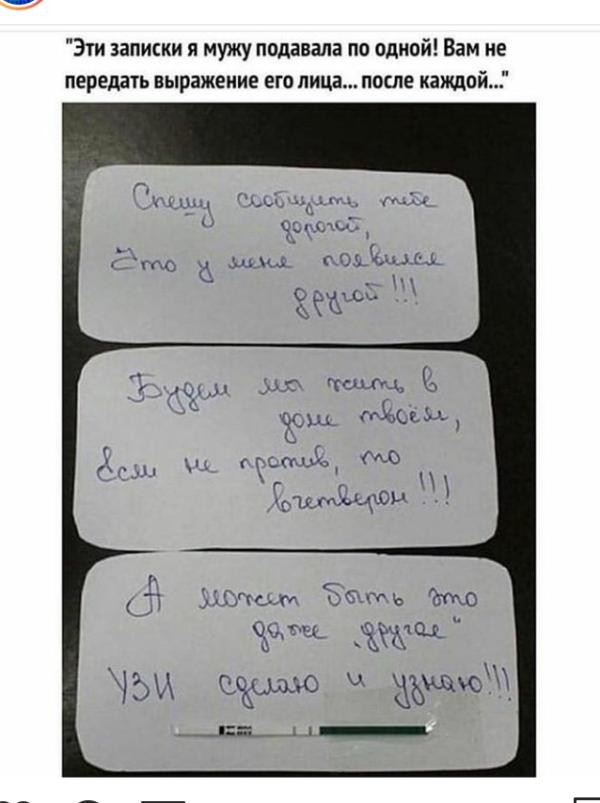 "Эти записки я мужу подавала по одной! Вам не
передать выражение его лица... после каждой..."
Спешу сообщить тебе
дорогой,
Что у меня появился
другой!!!
Будем мы жить в
доме твоём,
Если не против, то
вчетвером!!!
А может быть это
даже "другая"
УЗИ сделаю и узнаю!!!